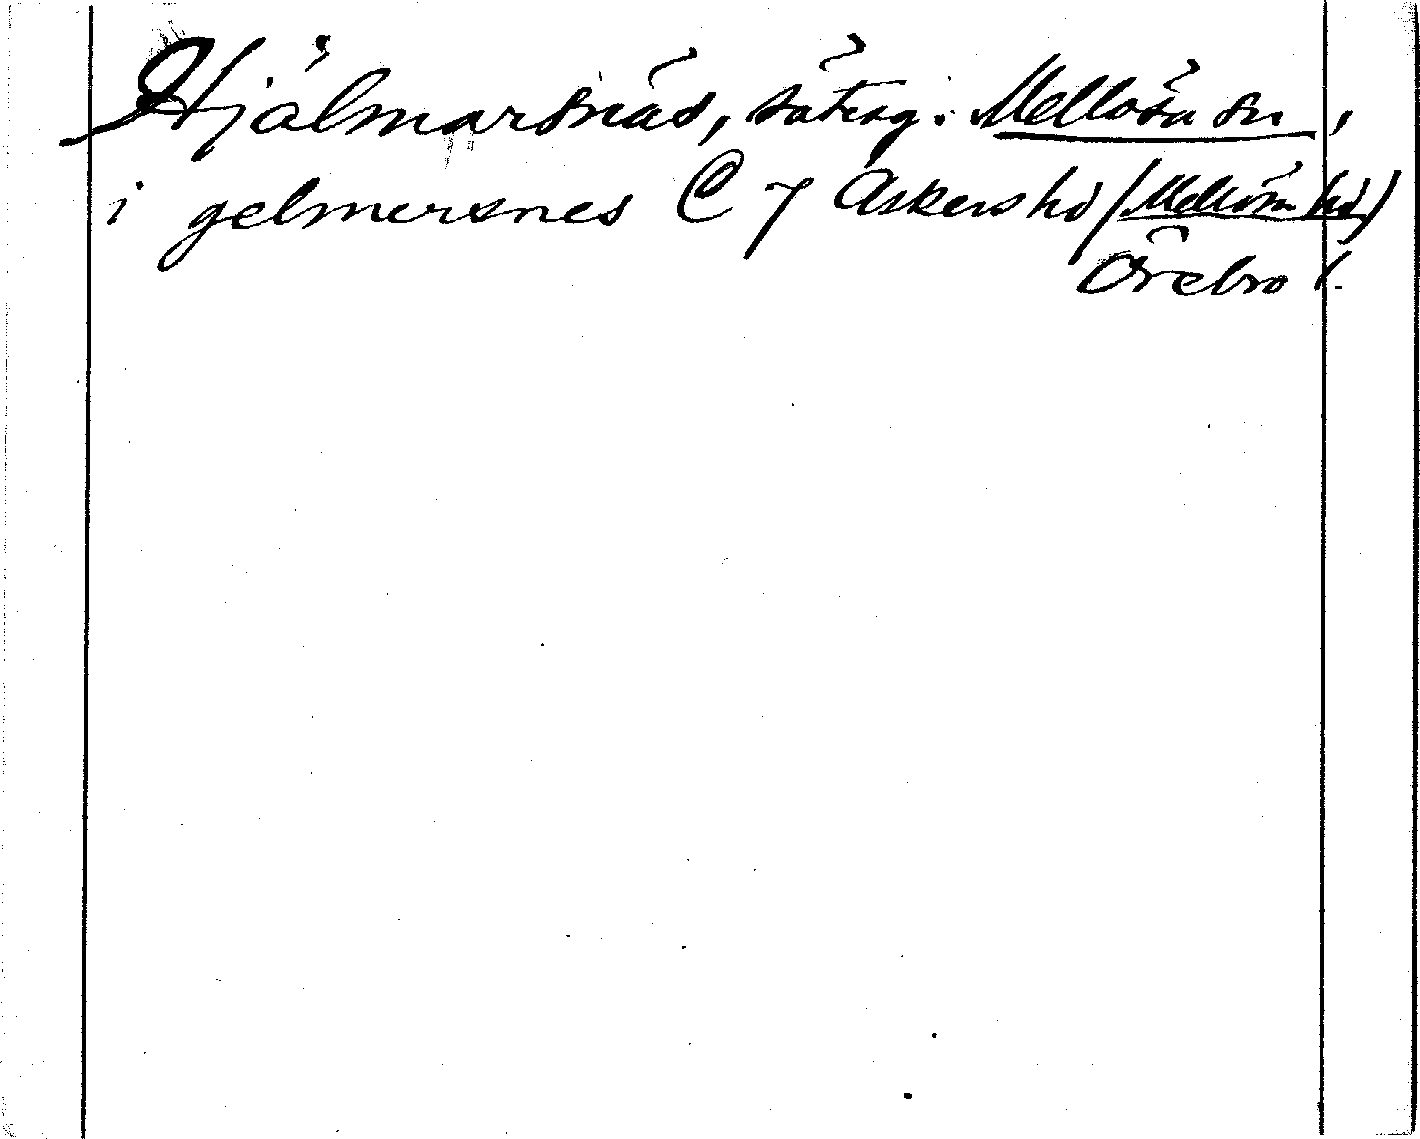 Hjälmarsnäs, säterig. Mellösa sn,
i gelmersnes C 7 Askers hd (Mellösa hd)
Örebro l.